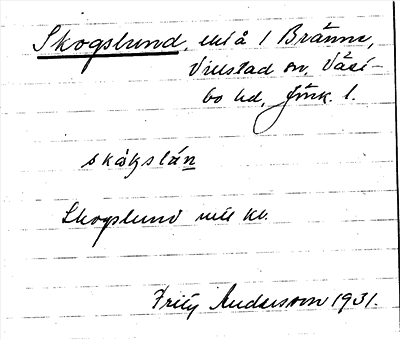 Skogslund, utl å 1 Bränne,
Villstad sn, Väst-
bo hd, Jönk. l.
skåkslán
Skogslund utl kl.
Fritz Andersson 1931.